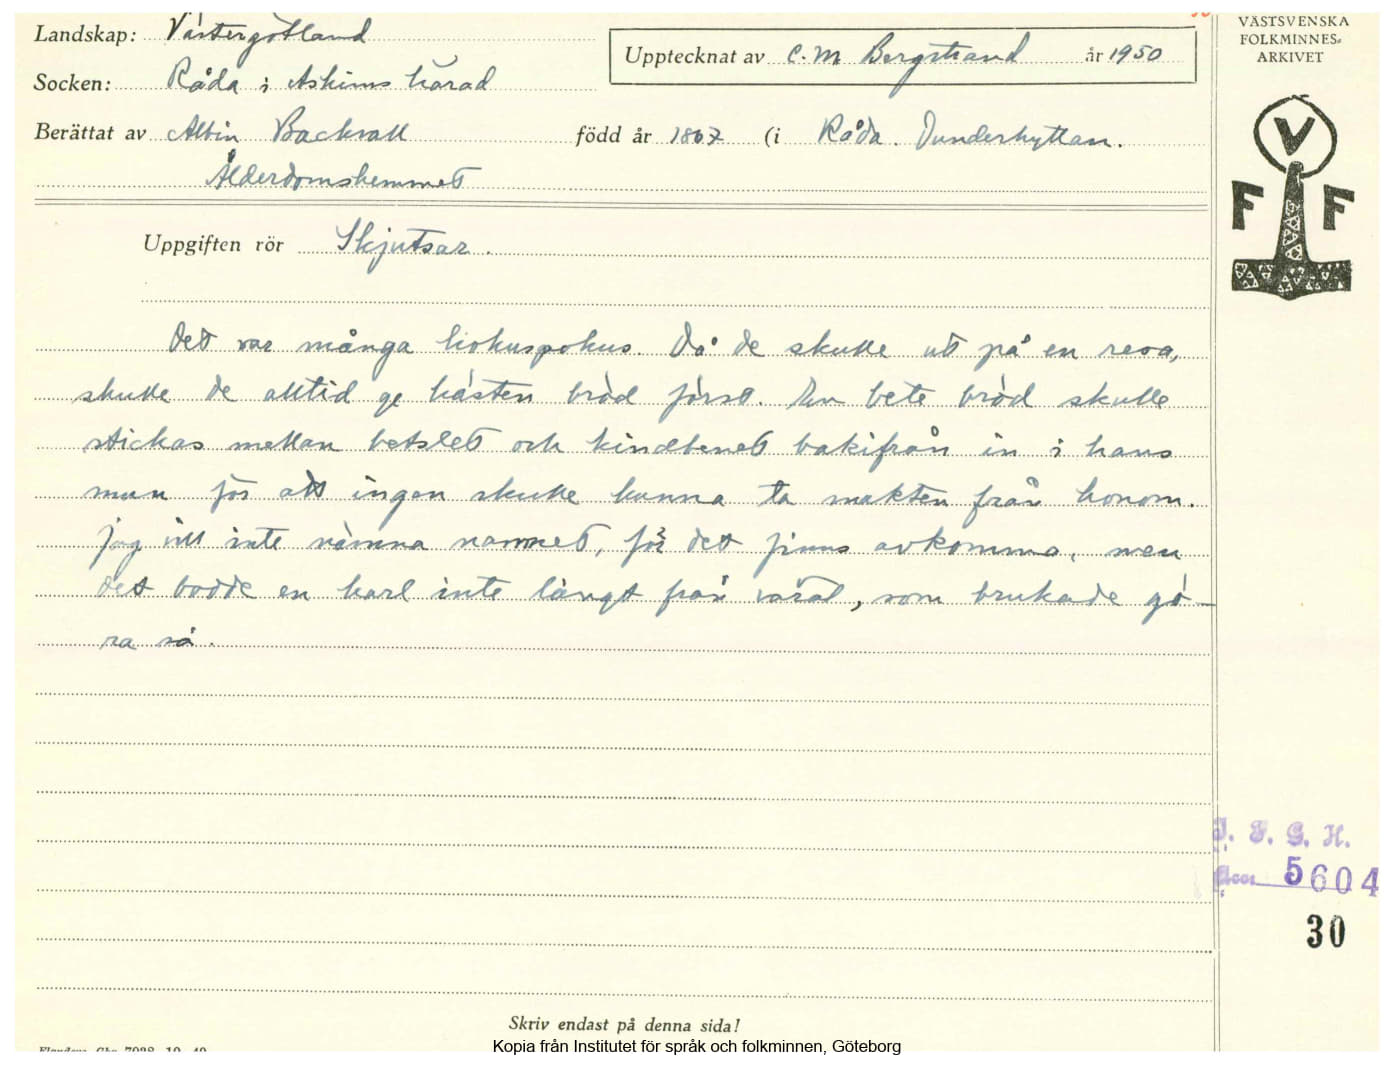 Landskap: Västergötland
Upptecknat av C.M Bergstrand år 1950
VÄSTSVENSKA
FOLKMINNES-
ARKIVET
Socken: Råda i Askims härad
Berättat av Albin Backvall född år 1867 (i Råda. Dunderhyttan.
Ålderdomshemmet
V
F F
Uppgiften rör Skjutsar.
Det var många hokuspokus. Då de skulle ut på en resa,
skulle de alltid ge hästen bröd först. En bete bröd skulle
stickas mellan betslet och kindbenet bakifrån in i hans
mun för att ingen skulle kunna ta makten från honom.
Jag vill inte nämna namnet, för det finns avkomma, men
det bodde en karl inte långt från Väräl, som brukade gö-
ra så.
I. F. G. H.
Acc. 5604
30
Skriv endast på denna sida!
Kopia från Institutet för språk och folkminnen, Göteborg